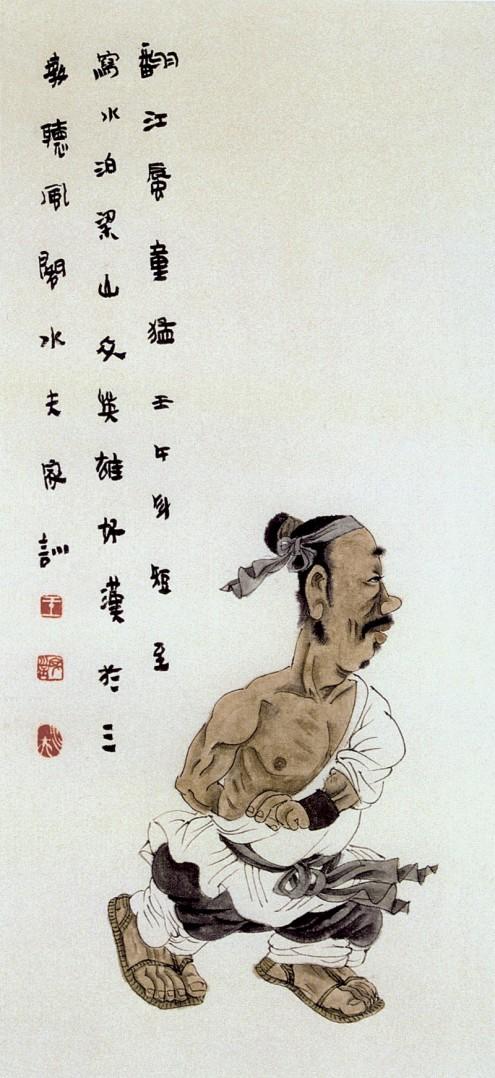 翻江蜃童猛壬午年短至
寫水泊梁山众英雄好漢於三
聽風閣水夫家訓
王